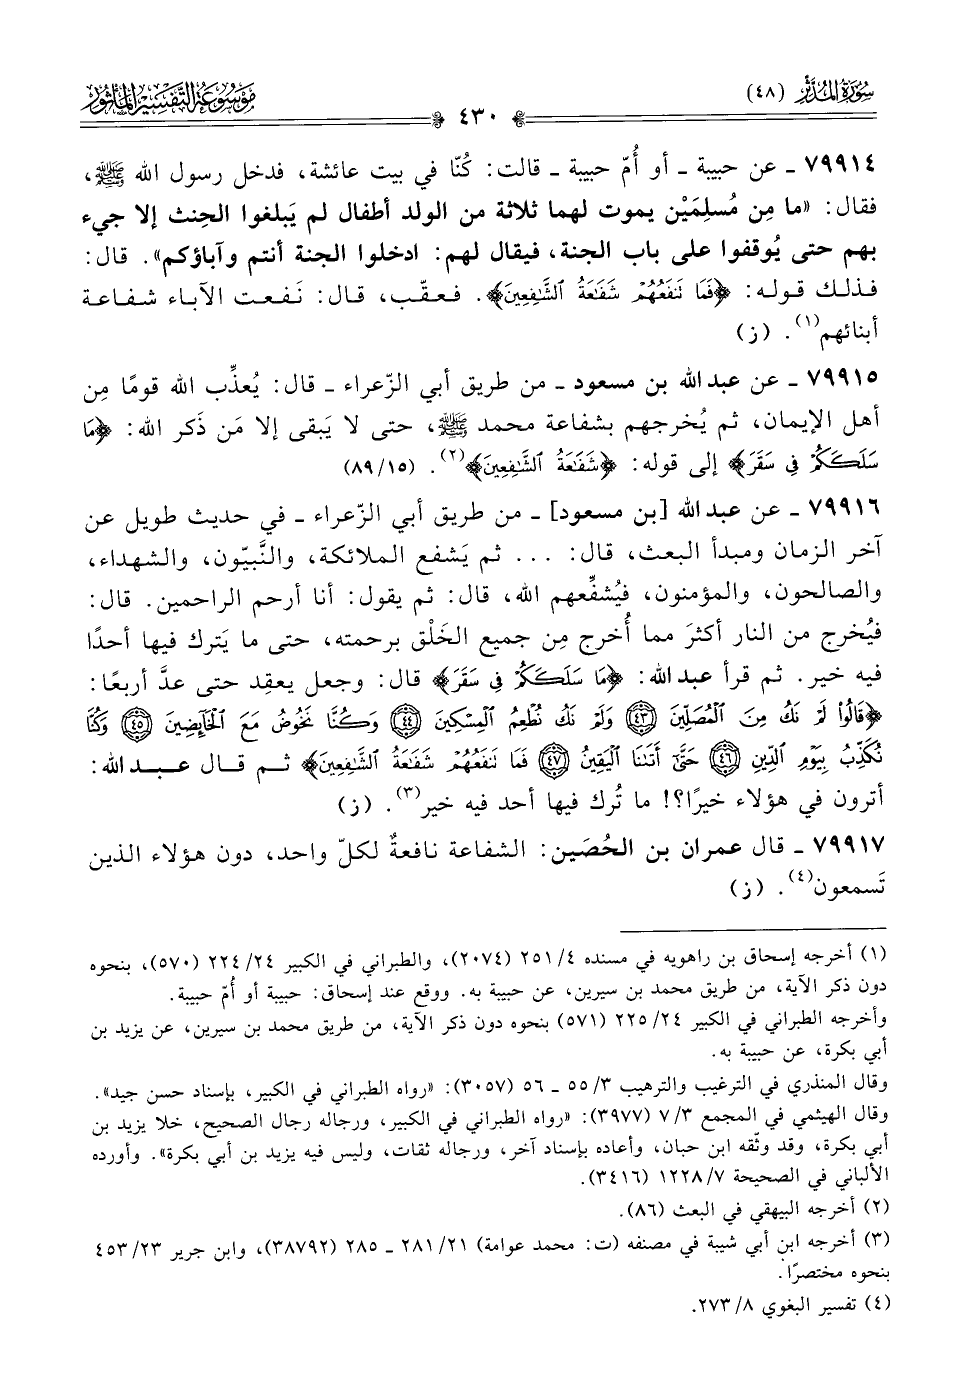 سُورَةُ المُدَّثِّرِ (٤٨)
٤٣٠
مَوْسُوعَةُ التَّفْسِيرِ المَأْثُور
٧٩٩١٤ ـ عن حبيبة ـ أو أُمّ حبيبة ـ قالت: كُنّا في بيت عائشة، فدخل رسول الله ﷺ،
فقال: «ما مِن مُسلِمَيْن يموت لهما ثلاثة من الولد أطفال لم يَبلغوا الحِنث إلا جيء
بهم حتى يُوقفوا على باب الجنة، فيقال لهم: ادخلوا الجنة أنتم وآباؤكم». قال:
فذلك قوله: ﴿فَمَا نَنفَعُهُمْ شَفَٰعَةُ ٱلشَّٰفِعِينَ﴾. فعقّب، قال: نَفعت الآباء شفاعة
أبنائهم(١). (ز)
٧٩٩١٥ ـ عن عبد الله بن مسعود ـ من طريق أبي الزّعراء ـ قال: يُعذِّب الله قومًا مِن
أهل الإيمان، ثم يُخرجهم بشفاعة محمد ﷺ، حتى لا يَبقى إلا مَن ذَكر الله: ﴿مَا
سَلَكَكُمْ فِى سَقَرَ﴾ إلى قوله: ﴿شَفَٰعَةُ ٱلشَّٰفِعِينَ﴾(٢). (١٥/٨٩)
٧٩٩١٦ ـ عن عبد الله [بن مسعود] ـ من طريق أبي الزّعراء ـ في حديث طويل عن
آخر الزمان ومبدأ البعث، قال: ... ثم يَشفع الملائكة، والنَّبيّون، والشهداء،
والصالحون، والمؤمنون، فيُشفِّعهم الله، قال: ثم يقول: أنا أرحم الراحمين. قال:
فيُخرج من النار أكثرَ مما أُخرج مِن جميع الخَلْق برحمته، حتى ما يَترك فيها أحدًا
فيه خير. ثم قرأ عبد الله: ﴿مَا سَلَكَكُمْ فِى سَقَرَ﴾ قال: وجعل يعقِد حتى عدَّ أربعًا:
﴿قَالُوا۟ لَمْ نَكُ مِنَ ٱلْمُصَلِّينَ ٤٣ وَلَمْ نَكُ نُطْعِمُ ٱلْمِسْكِينَ ٤٤ وَكُنَّا نَخُوضُ مَعَ ٱلْخَآئِضِينَ ٤٥ وَكُنَّا
نُكَذِّبُ بِيَوْمِ ٱلدِّينِ ٤٦ حَتَّىٰٓ أَتَىٰنَا ٱلْيَقِينُ ٤٧ فَمَا نَنفَعُهُمْ شَفَٰعَةُ ٱلشَّٰفِعِينَ﴾ ثم قال عبد الله:
أترون في هؤلاء خيرًا؟! ما تُرك فيها أحد فيه خير(٣). (ز)
٧٩٩١٧ ـ قال عمران بن الحُصَين: الشفاعة نافعةٌ لكلّ واحد، دون هؤلاء الذين
تَسمعون(٤). (ز)
(١) أخرجه إسحاق بن راهويه في مسنده ٤/ ٢٥١ (٢٠٧٤)، والطبراني في الكبير ٢٤/ ٢٢٤ (٥٧٠)، بنحوه
دون ذكر الآية، من طريق محمد بن سيرين، عن حبيبة به. ووقع عند إسحاق: حبيبة أو أُمّ حبيبة.
وأخرجه الطبراني في الكبير ٢٤/ ٢٢٥ (٥٧١) بنحوه دون ذكر الآية، من طريق محمد بن سيرين، عن يزيد بن
أبي بكرة، عن حبيبة به.
وقال المنذري في الترغيب والترهيب ٣/ ٥٥ ـ ٥٦ (٣٠٥٧): «رواه الطبراني في الكبير، بإسناد حسن جيد».
وقال الهيثمي في المجمع ٣/ ٧ (٣٩٧٧): «رواه الطبراني في الكبير، ورجاله رجال الصحيح، خلا يزيد بن
أبي بكرة، وقد وثّقه ابن حبان، وأعاده بإسناد آخر، ورجاله ثقات، وليس فيه يزيد بن أبي بكرة». وأورده
الألباني في الصحيحة ٧/ ١٢٢٨ (٣٤١٦).
(٢) أخرجه البيهقي في البعث (٨٦).
(٣) أخرجه ابن أبي شيبة في مصنفه (ت: محمد عوامة) ٢١/ ٢٨١ ـ ٢٨٥ (٣٨٧٩٢)، وابن جرير ٢٣/ ٤٥٣
بنحوه مختصرًا.
(٤) تفسير البغوي ٨/ ٢٧٣.